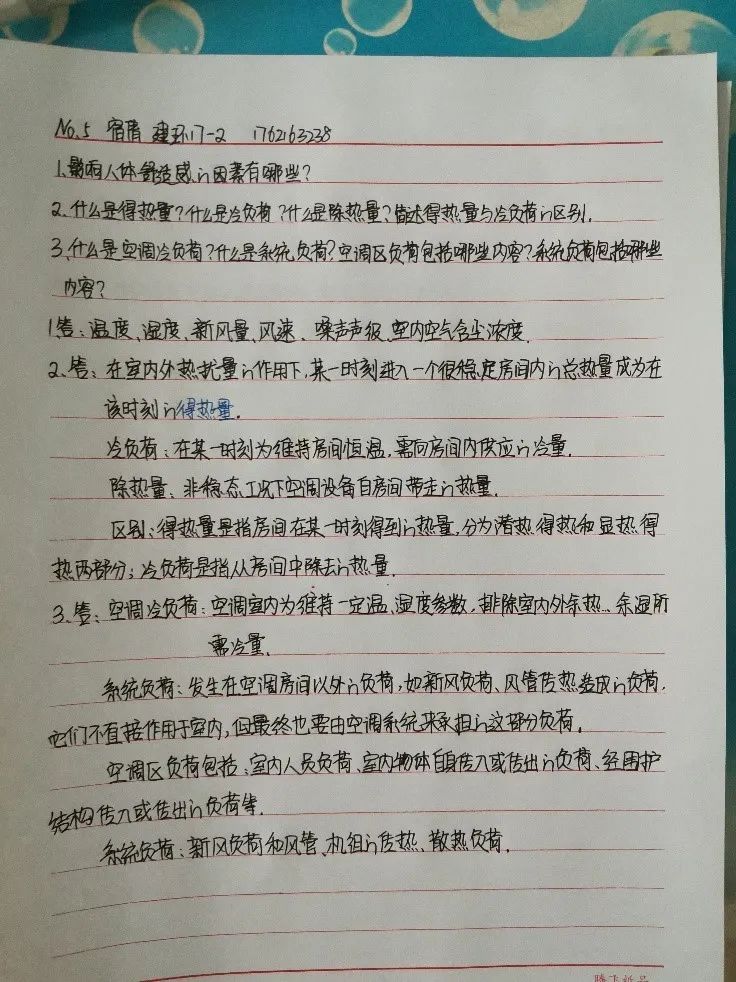 No.5 宿倩 建环17-2 1762163238
1.影响人体舒适感的因素有哪些?
2.什么是得热量?什么是冷负荷?什么是除热量?简述得热量与冷负荷的区别.
3.什么是空调冷负荷?什么是系统负荷?空调区负荷包括哪些内容?系统负荷包括哪些
内容?
1答:温度、湿度、新风量、风速、噪声声级、室内空气含尘浓度.
2.答:在室内外热扰量的作用下,某一时刻进入一个很稳定房间内的总热量成为在
该时刻的得热量.
冷负荷:在某一时刻为维持房间恒温,需向房间内供应的冷量.
除热量:非稳态工况下空调设备自房间带走的热量.
区别:得热量是指房间在某一时刻得到的热量,分为潜热得热和显热得
热两部分;冷负荷是指从房间中除去的热量.
3.答:空调冷负荷:空调室内为维持一定温、湿度参数,排除室内外余热、余湿所
需冷量.
系统负荷:发生在空调房间以外的负荷,如新风负荷、风管传热造成的负荷,
它们不直接作用于室内,但最终也要由空调系统来承担的这部分负荷.
空调区负荷包括:室内人员负荷、室内物体自身传入或传出的负荷、经围护
结构传入或传出的负荷等.
系统负荷:新风负荷和风管、机组的传热、散热负荷.